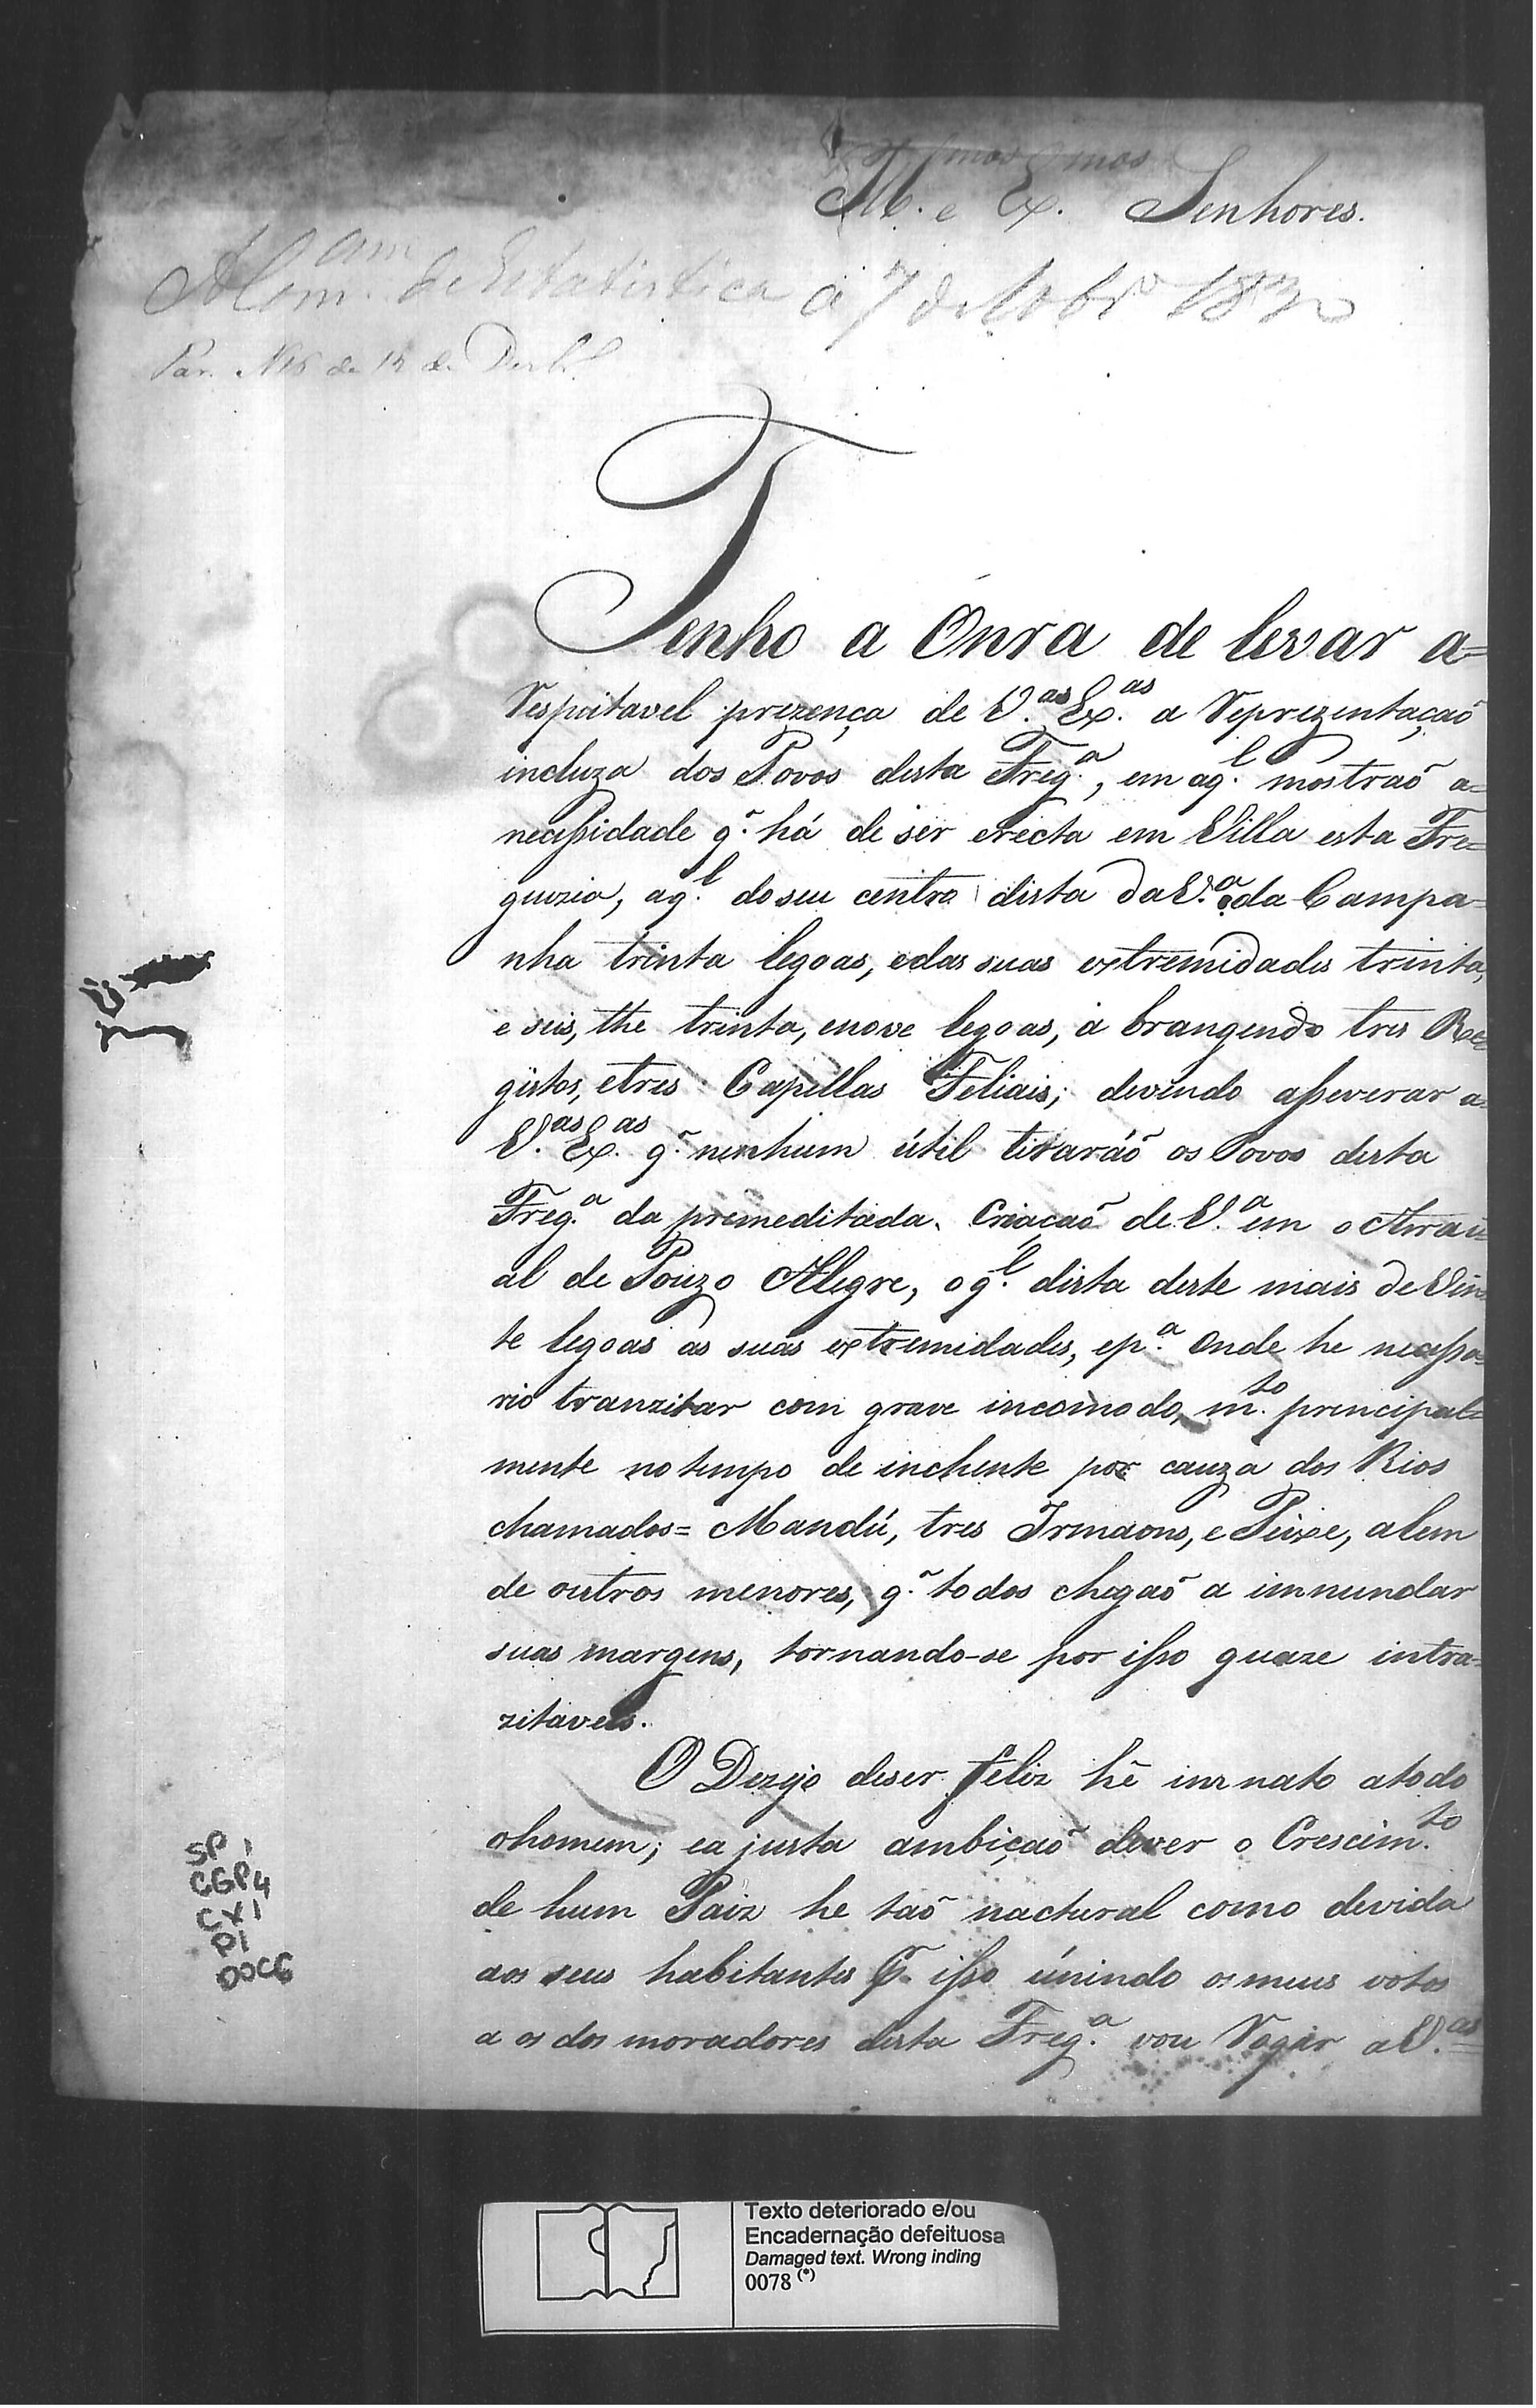 Il.mos e Ex.mos Senhores.
A Com.am de Estatistica a 7 de 1830
Par. de de Dezb.
Tenho a Onra de levar a=
Respeitavel prezença de V.as Ex.as a Reprezentaçaõ
incluza dos Povos desta Freg.a, em aq.l mostraõ a=
necessidade q.~ há de ser erecta em Villa esta Fre=
guezia, aq.l do seu centro dista da V.a da Campa=
nha trinta legoas, edas suas extremidades trinta,
e seis, the trinta, enove legoas, a brangendo tres Re=
gistos, etres Capellas Feliais; devendo asseverar a=
V.as Ex.as q.~ nenhum útil tiraráõ os Povos desta
Freg.a da premeditada Criaçaõ de V.a em o Arrai=
al de Pouzo Alegre, o q.l dista deste mais de Vin=
te legoas as suas extremidades, ep.a Onde he necessa=
rio tranzitar com grave incomodo, m.to principal=
mente no tempo de inchente por cauza dos Rios
chamados= Mandú, tres Irmaons, e Peixe, alem
de outros menores, q.~ todos chegaõ a imnundar
suas margens, tornando-se por isso quaze intra=
zitaveis.
O Dezejo deser feliz hé innato atodo
ohomem; ea justa ambiçaõ dever o Crescim.to
de hum Paiz he taõ nactural como devida
aos seus habitantes P.r isso únindo os meus votos
a os dos moradores desta Freg.a vou Rogar a V.as
SP 1
CGP4
CX1
P1
DOC6
Texto deteriorado e/ou
Encadernação defeituosa
Damaged text. Wrong inding
0078 (*)